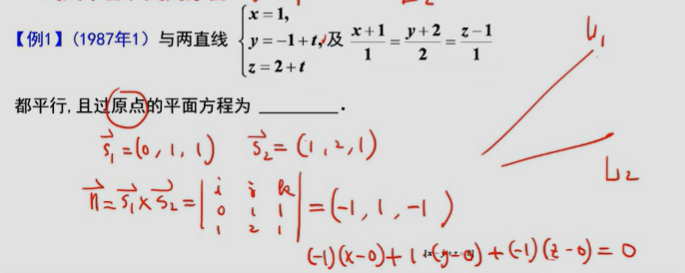 【例1】(1987年1) 与两直线 { x = 1, y = -1 + t, z = 2 + t 及 (x+1)/1 = (y+2)/2 = (z-1)/1
都平行, 且过原点的平面方程为 ________.
L₁
L₂
s⃗₁ = (0, 1, 1) s⃗₂ = (1, 2, 1)
n⃗ = s⃗₁ × s⃗₂ = | i j k; 0 1 1; 1 2 1 | = (-1, 1, -1)
(-1)(x-0) + 1·(y-0) + (-1)(z-0) = 0